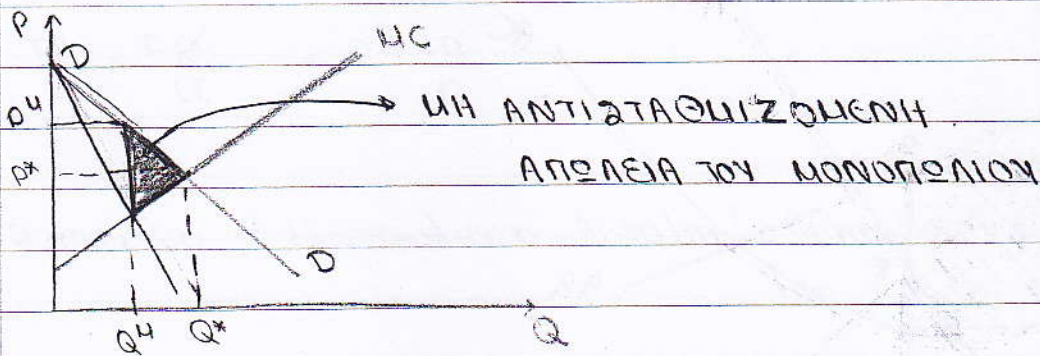 P
D
MC
Pᴹ
ΜΗ ΑΝΤΙΣΤΑΘΜΙΖΟΜΕΝΗ
P*
ΑΠΩΛΕΙΑ ΤΟΥ ΜΟΝΟΠΩΛΙΟΥ
D
Qᴹ Q* Q